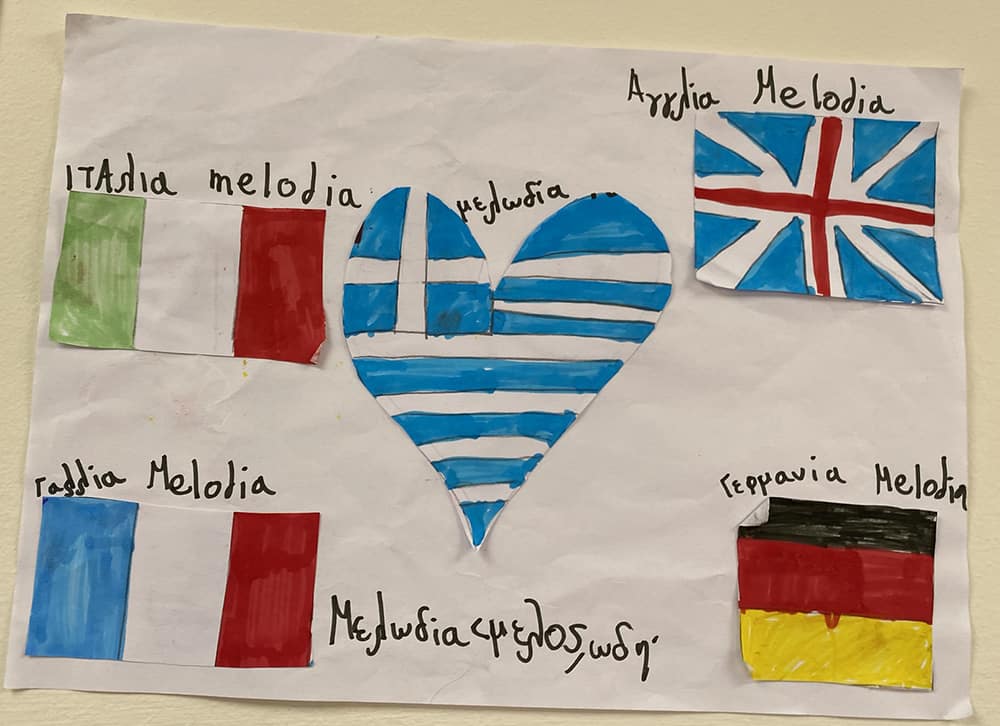 Αγγλία Melodia
ΙΤΑλια melodia
μελωδία
Γαλλία Melodia
Γερμανία Melodin
Μελωδία<μελος,ωδη